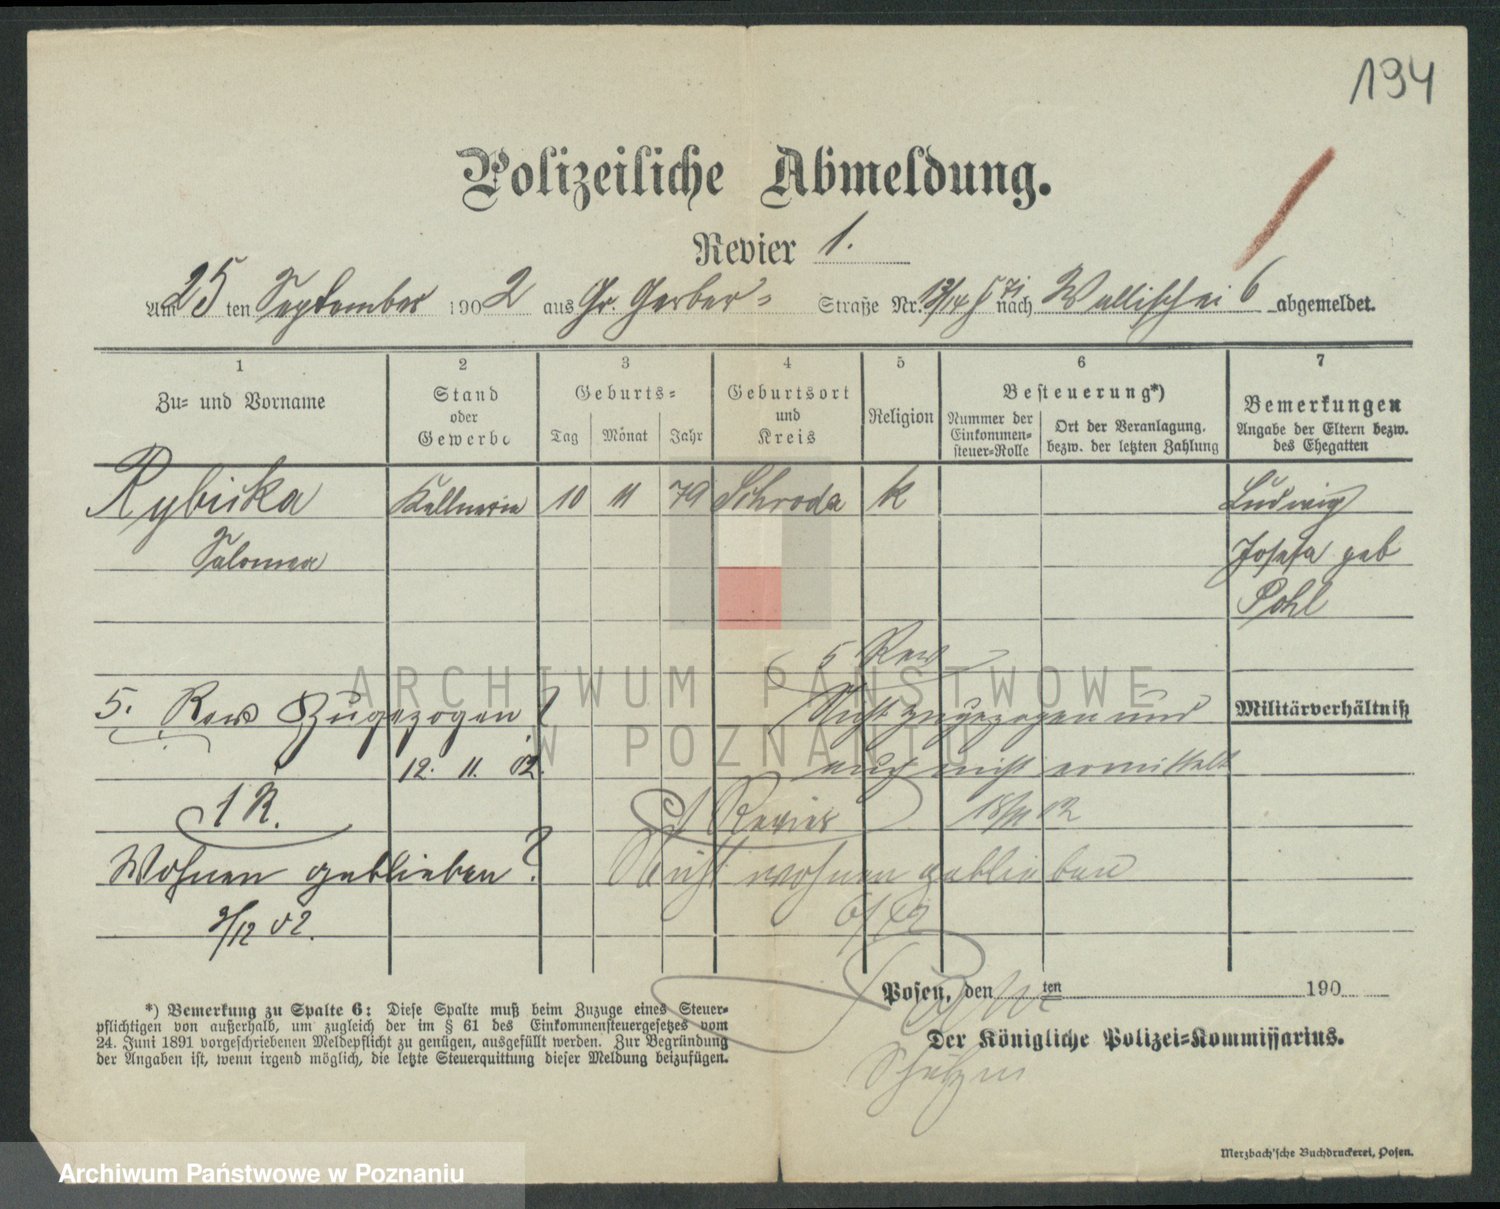 194
Polizeiliche Abmeldung.
Revier 1.
Am 25 ten September 1902 aus Gr. Gerber- Straße Nr. 13/14 nach Wallischei 6 abgemeldet.
1 2 3 4 5 6 7
Zu- und Vorname
Stand oder Gewerbe
Geburts-
Tag Monat Jahr
Geburtsort und Kreis
Religion
Besteuerung*)
Nummer der Einkommen-steuer-Rolle
Ort der Veranlagung, bezw. der letzten Zahlung
Bemerkungen
Angabe der Eltern bezw. des Ehegatten
Rybicka Kellnerin 10 11 79 Schroda k Ludwig
Salomea Josefa geb
Pohl
5 Rew
5. Rew Zugezogen? Nicht zugezogen und Militärverhältniß
12. 11. 02. auch nicht ermittelt
1 R. 1 Revier 18/11 02
Wohnen geblieben? Nicht wohnen geblieben
9/12 02.
Posen, den ten 190
Der Königliche Polizei-Kommissarius.
*) Bemerkung zu Spalte 6: Diese Spalte muß beim Zuzuge eines Steuer-
pflichtigen von außerhalb, um zugleich der im § 61 des Einkommensteuergesetzes vom
24. Juni 1891 vorgeschriebenen Meldepflicht zu genügen, ausgefüllt werden. Zur Begründung
der Angaben ist, wenn irgend möglich, die letzte Steuerquittung dieser Meldung beizufügen.
Merzbach'sche Buchdruckerei, Posen.
ARCHIWUM PAŃSTWOWE
W POZNANIU
Archiwum Państwowe w Poznaniu